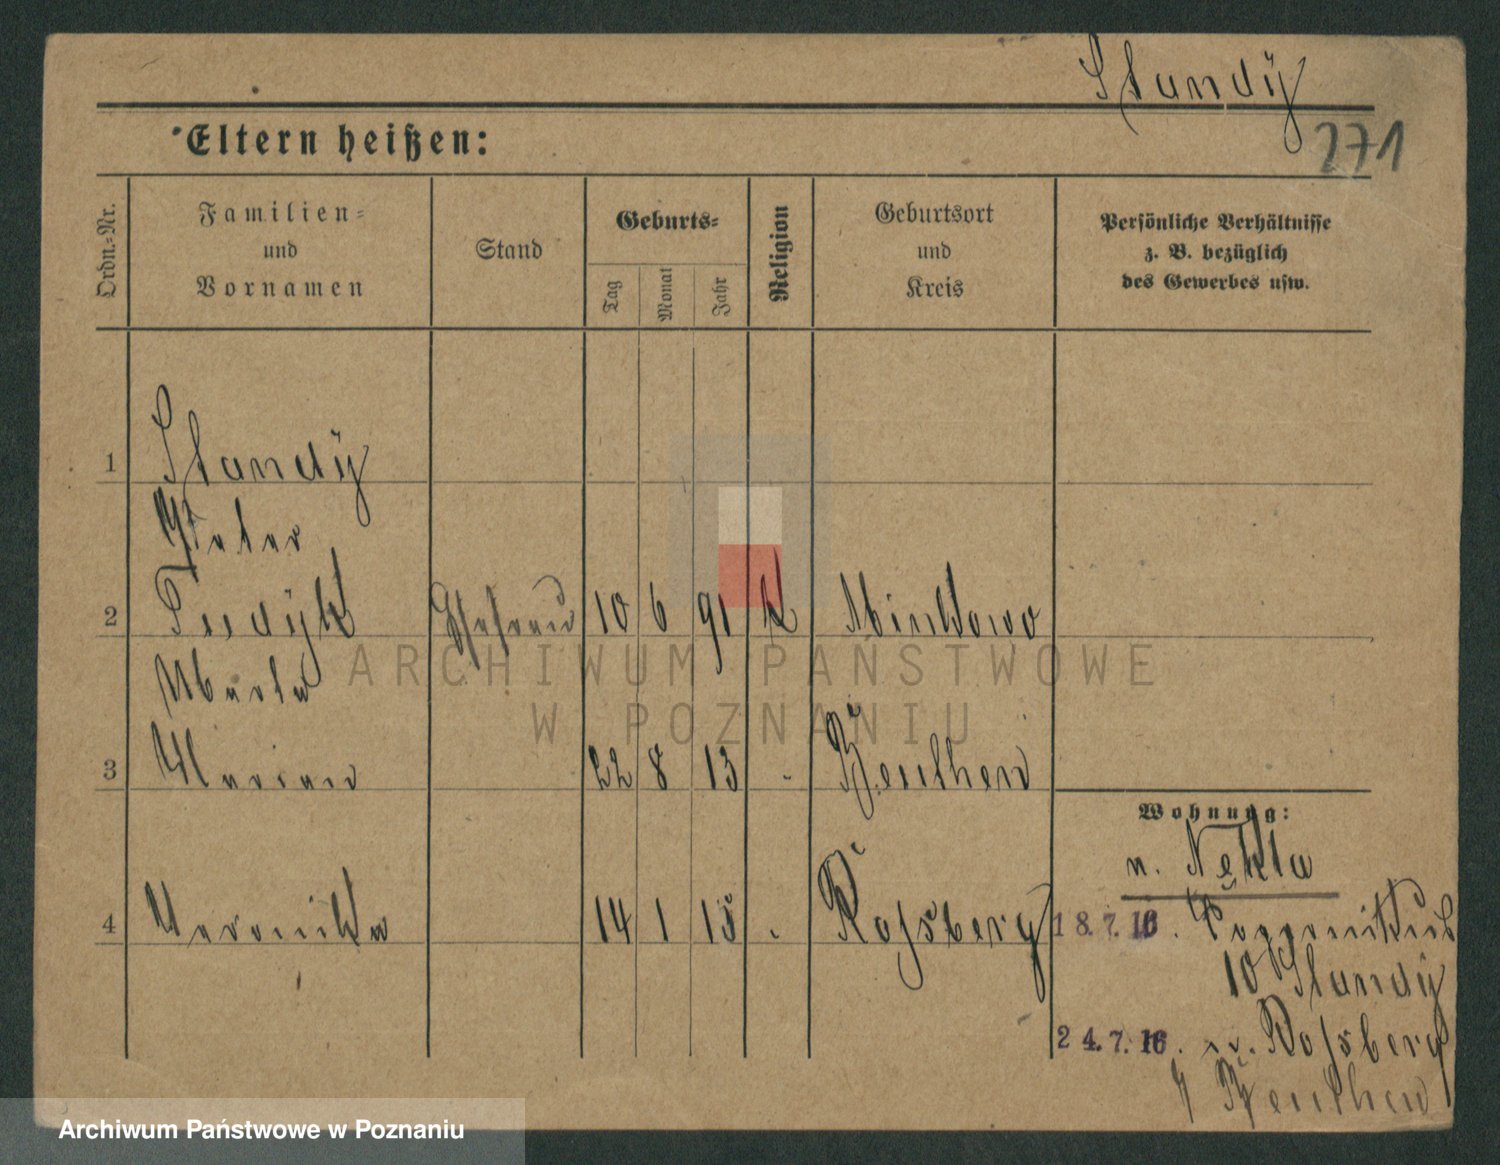 Standÿ
271
Eltern heißen:
Ordn.=Nr.
Familien=
und
Vornamen
Stand
Geburts=
Tag
Monat
Jahr
Religion
Geburtsort
und
Kreis
Persönliche Verhältnisse
z. B. bezüglich
des Gewerbes usw.
1 Standÿ
Peter
2 Ehefrau 10 6 91 k
3 Marian 22 8 13 - Beuthen
4 Veronika 14 1 15 . Roßberg
Wohnung:
n. Nekla
18.7.16.
10 Standÿ
24.7.16. n. Roßberg
Beuthen
ARCHIWUM PAŃSTWOWE
W POZNANIU
Archiwum Państwowe w Poznaniu